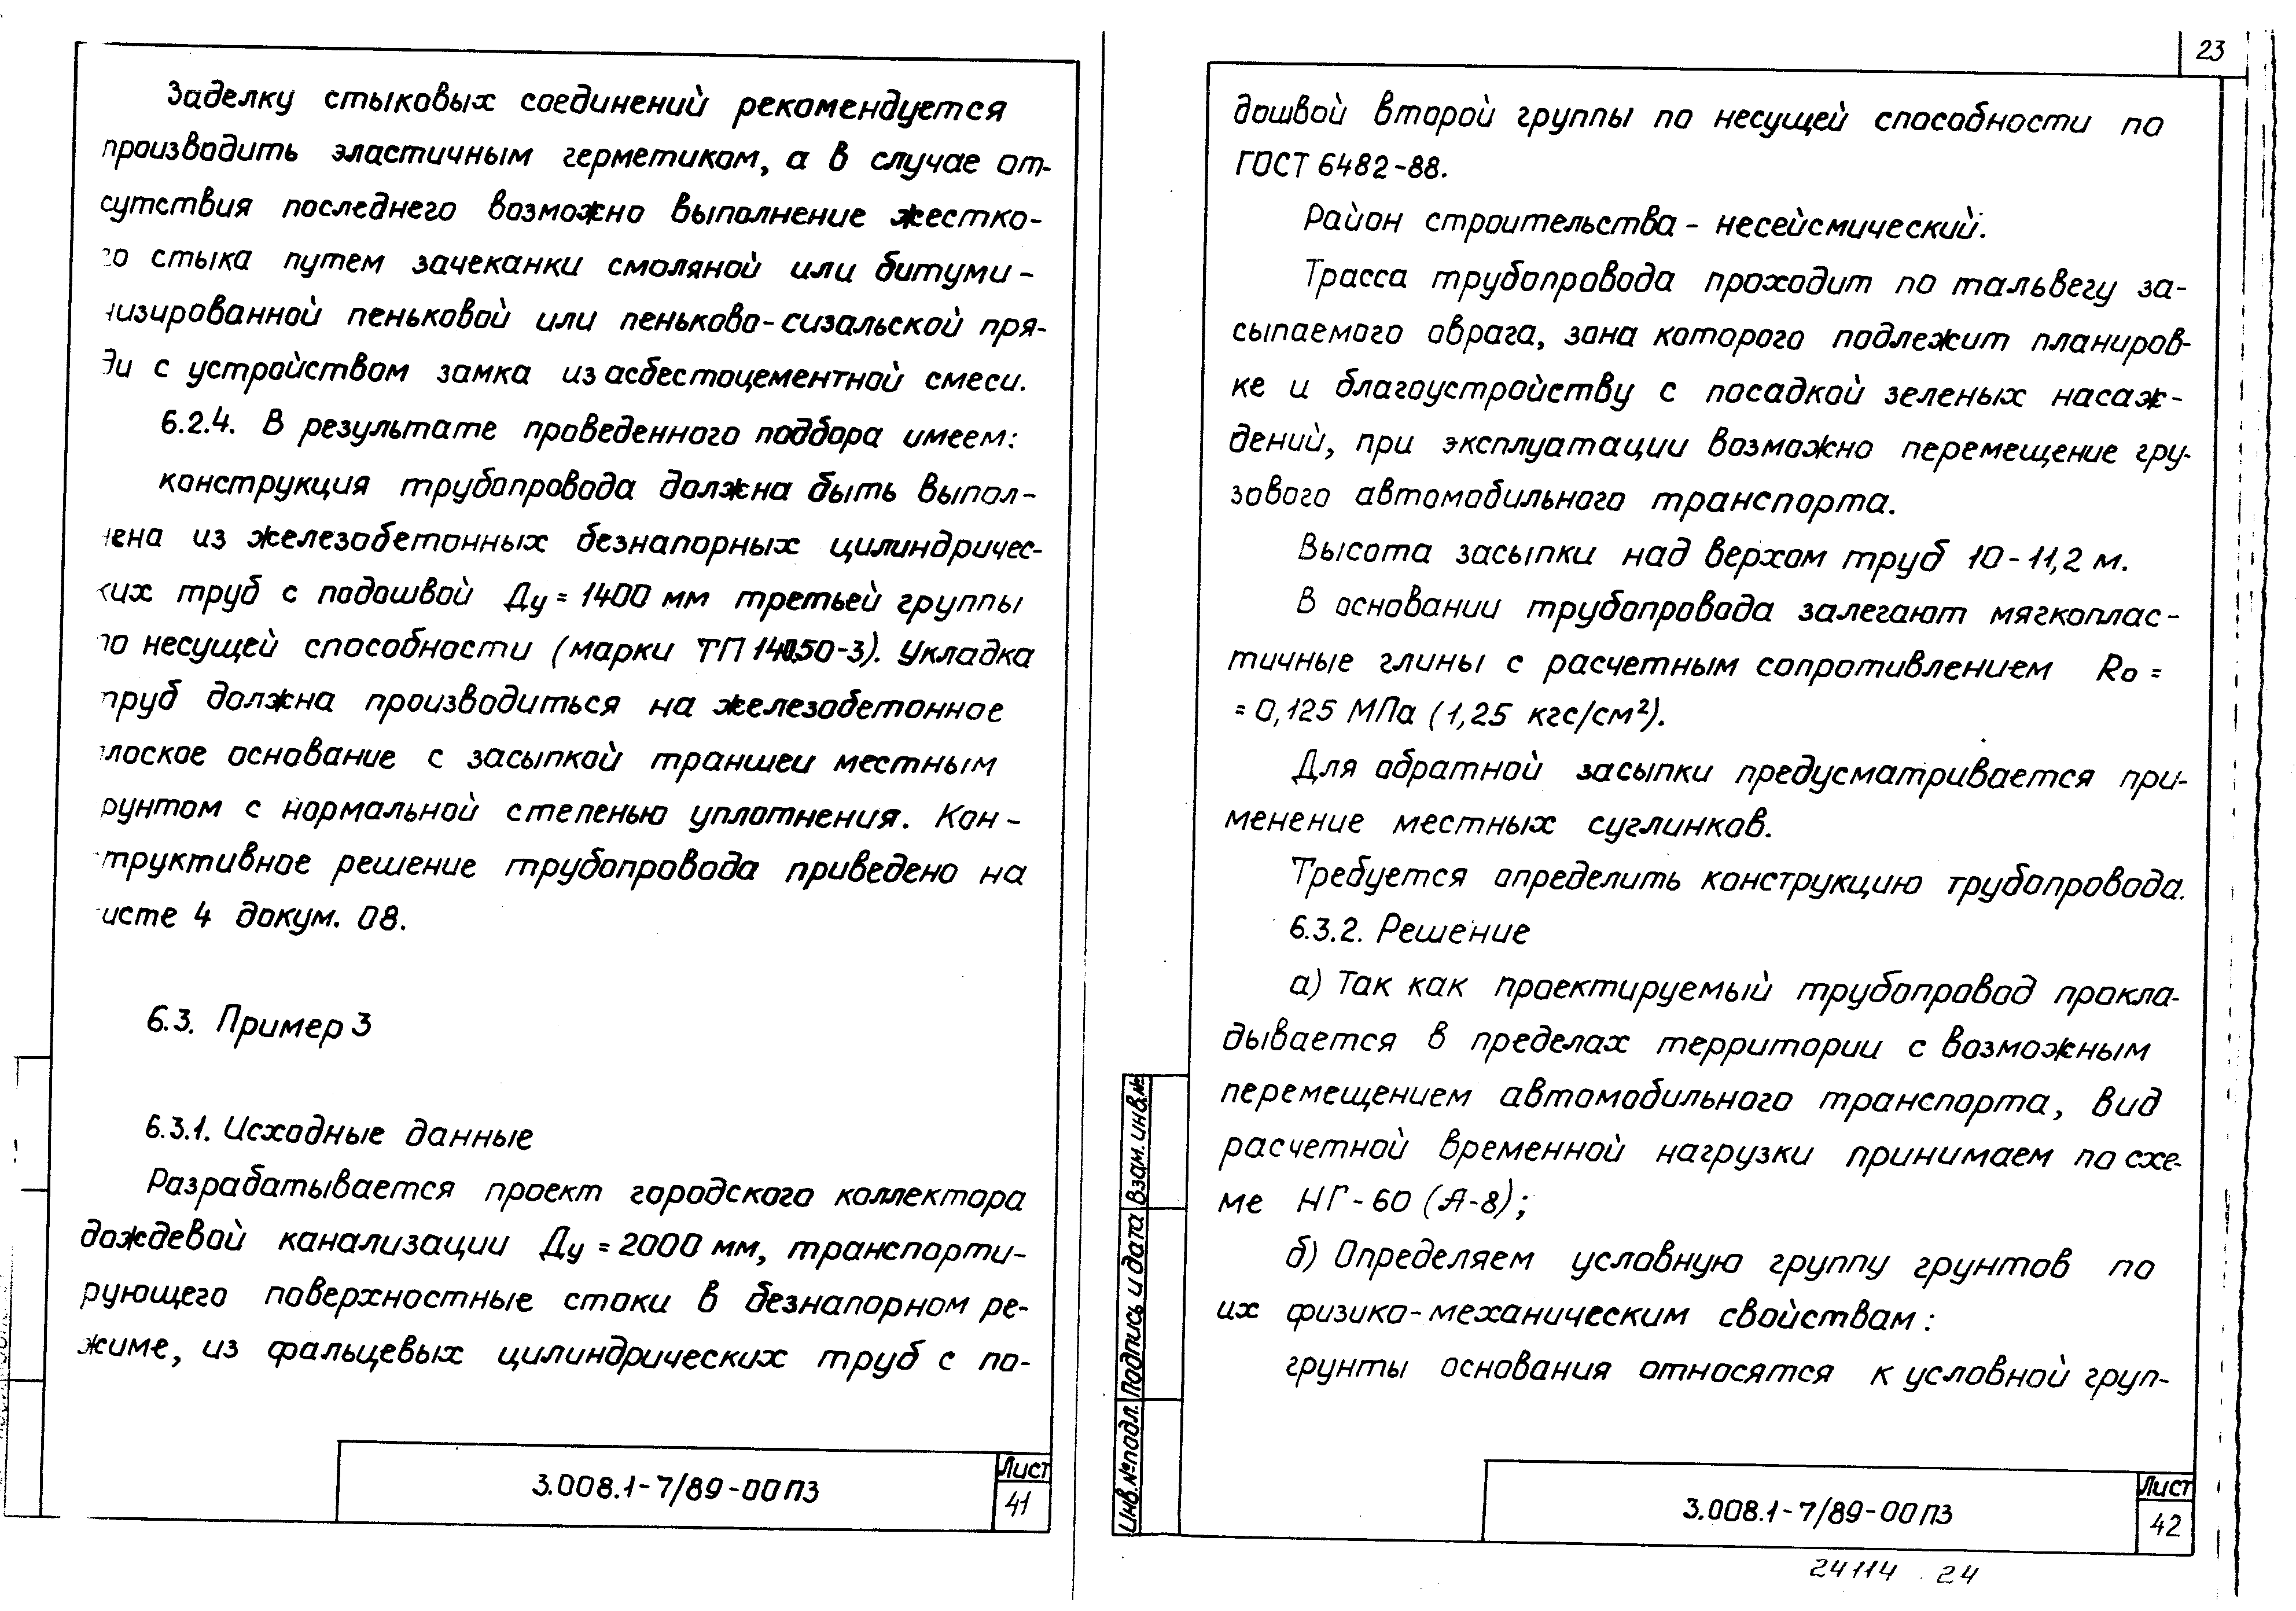 Заделку стыковых соединений рекомендуется
производить эластичным герметиком, а в случае от-
сутствия последнего возможно выполнение жестко-
го стыка путем зачеканки смоляной или битуми-
низированной пеньковой или пеньково-сизальской пря-
ди с устройством замка из асбестоцементной смеси.
6.2.4. В результате проведенного подбора имеем:
конструкция трубопровода должна быть выпол-
нена из железобетонных безнапорных цилиндричес-
ких труб с подошвой Ду = 1400 мм третьей группы
по несущей способности (марки ТП 140.50-3). Укладка
труб должна производиться на железобетонное
плоское основание с засыпкой траншеи местным
грунтом с нормальной степенью уплотнения. Кон-
структивное решение трубопровода приведено на
листе 4 докум. 08.
6.3. Пример 3
6.3.1. Исходные данные
Разрабатывается проект городского коллектора
дождевой канализации Ду = 2000 мм, транспорти-
рующего поверхностные стоки в безнапорном ре-
жиме, из фальцевых цилиндрических труб с по-
3.008.1-7/89-00ПЗ
Лист
41
23
дошвой второй группы по несущей способности по
ГОСТ 6482-88.
Район строительства - несейсмический.
Трасса трубопровода проходит по тальвегу за-
сыпаемого оврага, зона которого подлежит планиров-
ке и благоустройству с посадкой зеленых насаж-
дений, при эксплуатации возможно перемещение гру-
зового автомобильного транспорта.
Высота засыпки над верхом труб 10-11,2 м.
В основании трубопровода залегают мягкоплас-
тичные глины с расчетным сопротивлением Rо =
= 0,125 МПа (1,25 кгс/см²).
Для обратной засыпки предусматривается при-
менение местных суглинков.
Требуется определить конструкцию трубопровода.
6.3.2. Решение
а) Так как проектируемый трубопровод прокла-
дывается в пределах территории с возможным
перемещением автомобильного транспорта, вид
расчетной временной нагрузки принимаем по схе-
ме НГ-60 (А-8);
б) Определяем условную группу грунтов по
их физико-механическим свойствам:
грунты основания относятся к условной груп-
Инв.№подл. Подпись и дата Взам.инв.№
3.008.1-7/89-00ПЗ
Лист
42
24114 24